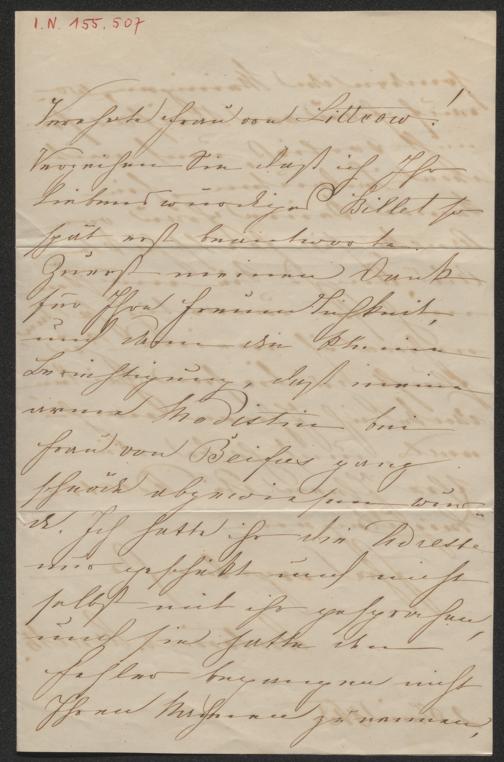 I.N. 155.507
Verehrte Frau von Littrow!
Verzeihen Sie daß ich Ihr
liebenswürdiges Billet so
spät erst beantworte.
Zuerst meinen Dank
für Ihre Freundlichkeit,
und dann die kleine
Berichtigung, daß meine
arme Modistin bei
Frau von Beifus ganz
schnöde abgewiesen wur-
de. Ich hatte ihr die Adresse
nur geschickt und nicht
selbst mit ihr gesprochen,
und sie hatte den
Fehler begangen nicht
Ihren Nahmen zu nennen,